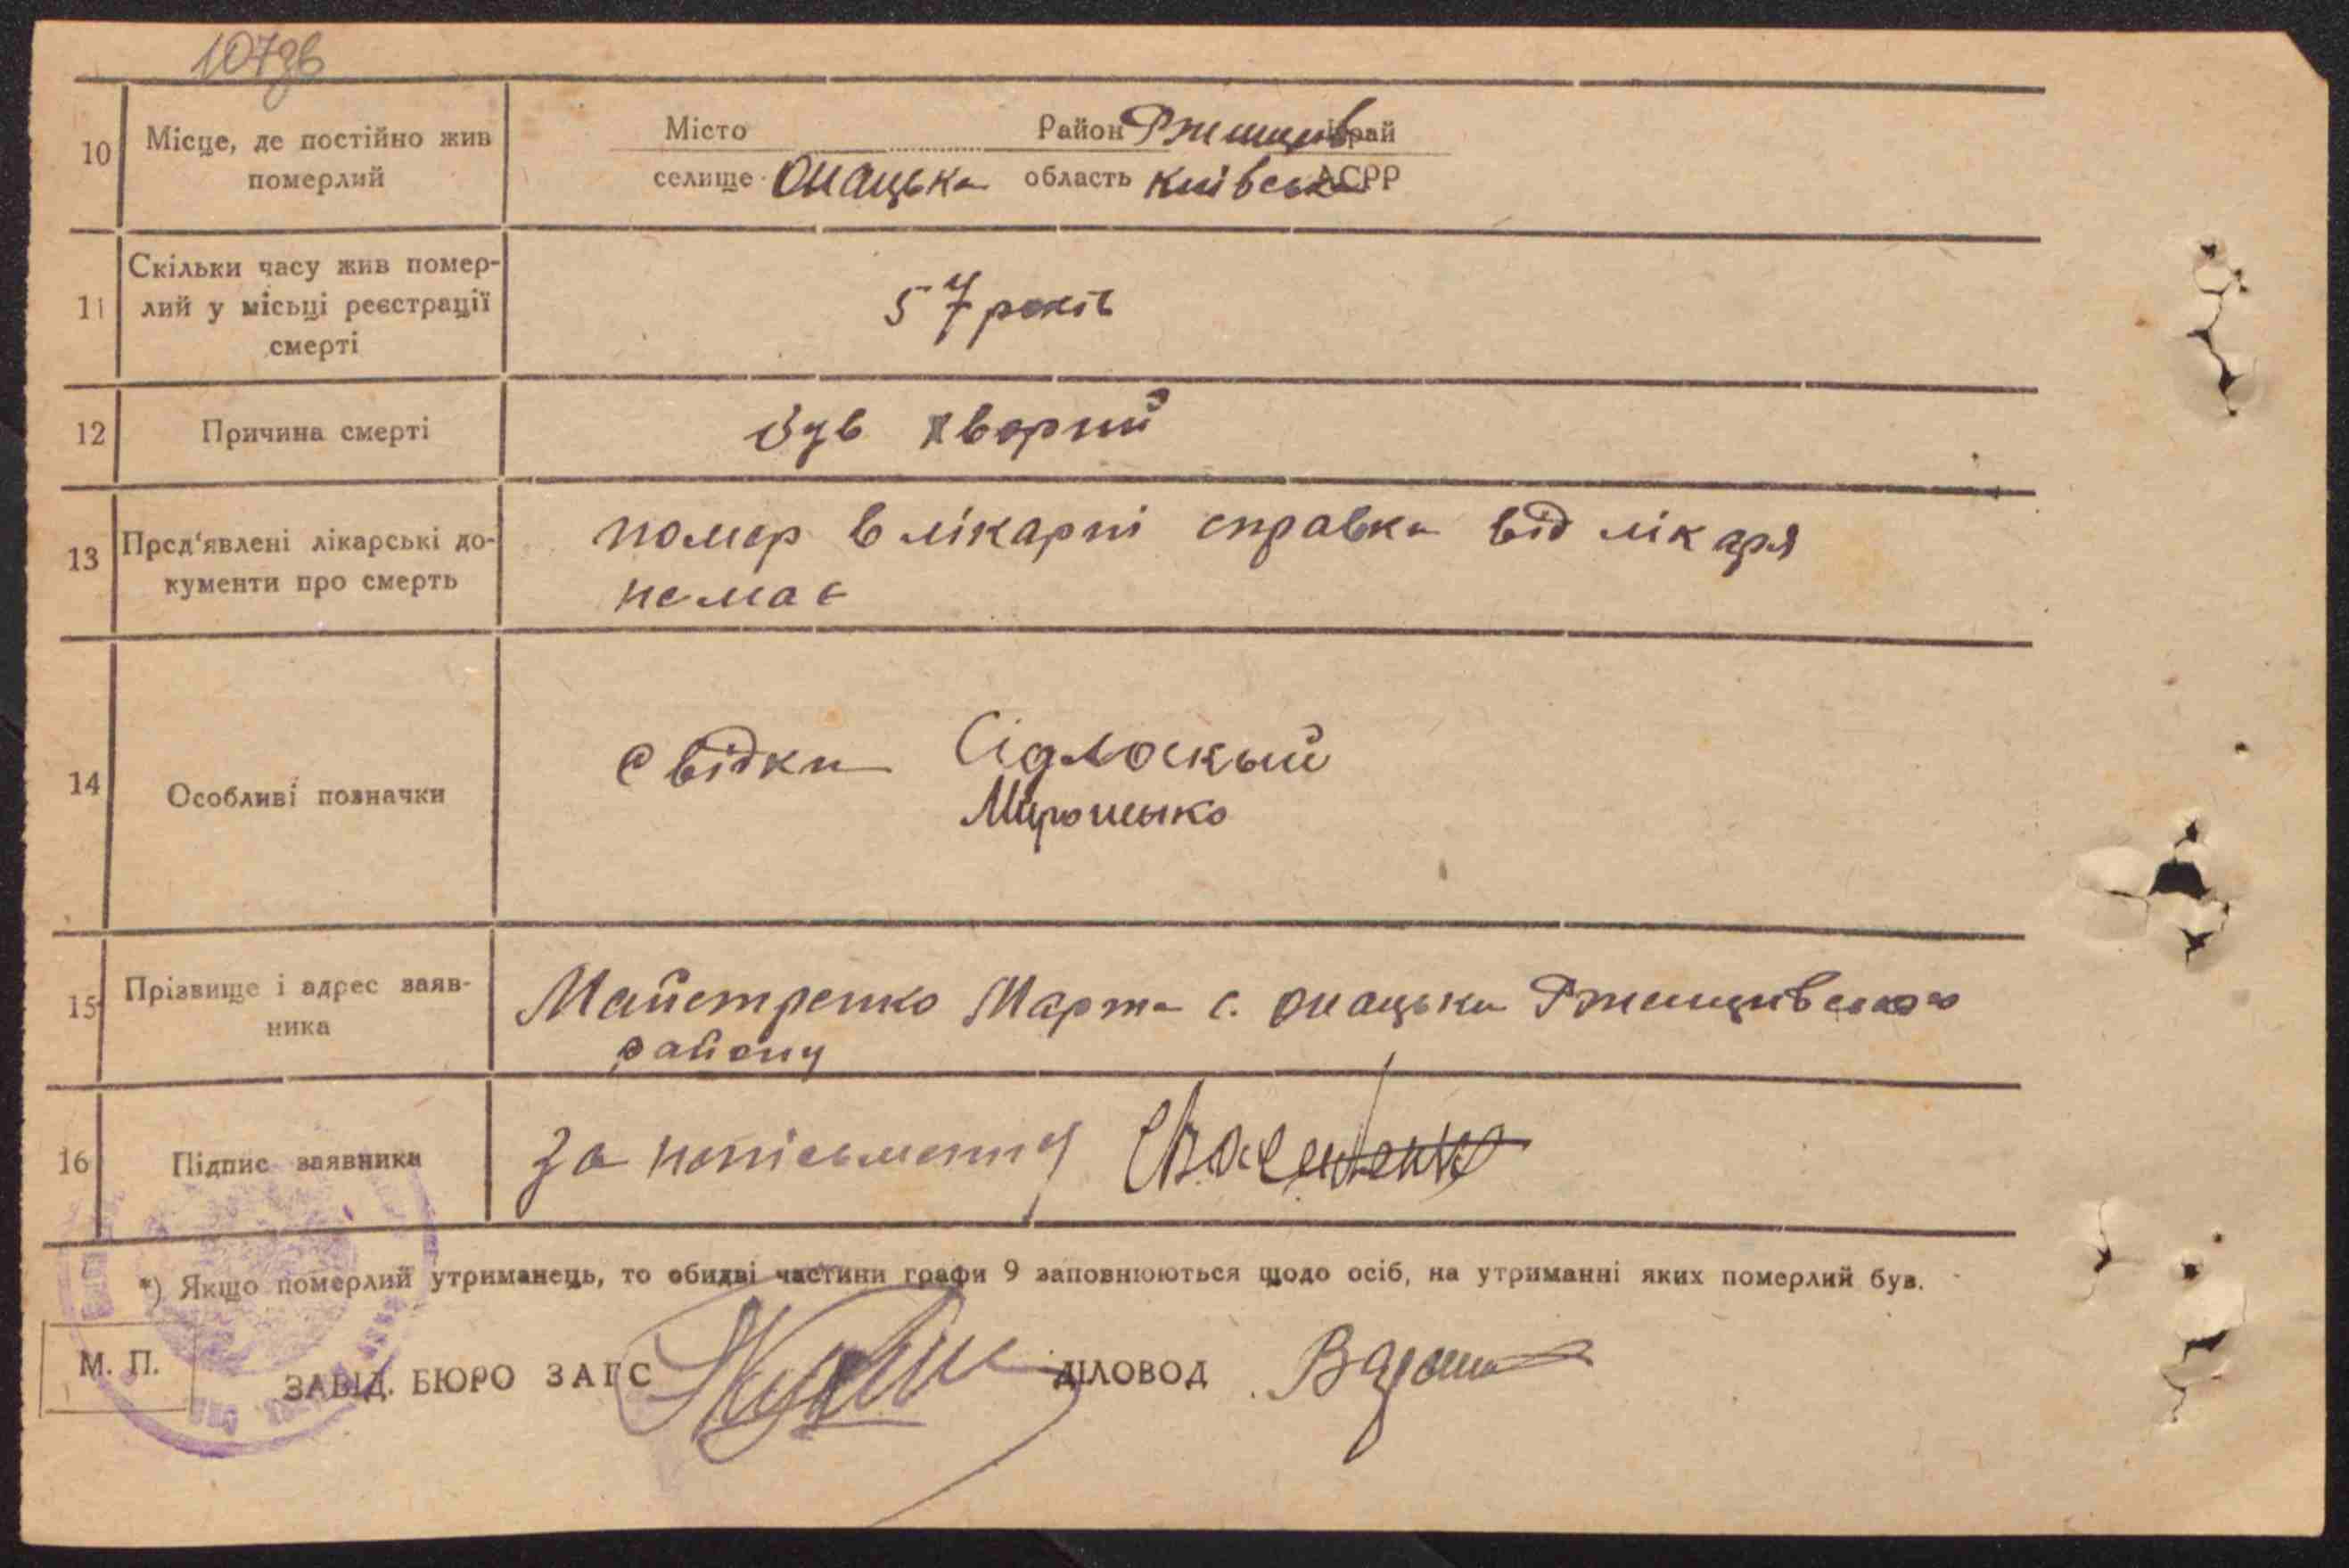 107зв
10 Місце, де постійно жив померлий
Місто Район Ржищів Край
селище Онацька область київська АСРР
11 Скільки часу жив помер-
лий у місьці реєстрації
смерті
57 років
12 Причина смерті був хворий
13 Пред'явлені лікарські до-
кументи про смерть
помер в лікарні справка від лікаря
немає
14 Особливі позначки
свідки
Мирошько
15 Прізвище і адрес заяв-
ника
Майстренко Марта с. онацьки Ржищивського
району
16 Підпис заявника за неписьменну
*) Якщо померлий утриманець, то обидві частини графи 9 заповнюються щодо осіб, на утриманні яких померлий був.
М. П.
ЗАВІД. БЮРО ЗАГС ДІЛОВОД